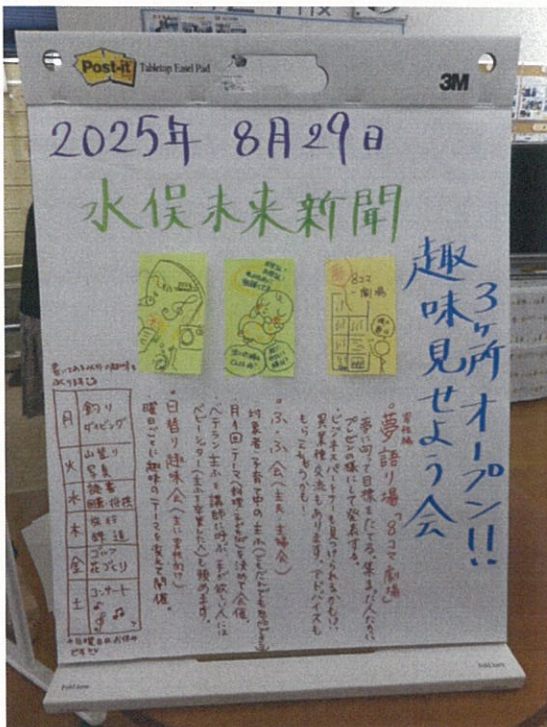 Post-it Tabletop Easel Pad
3M
2025年 8月29日
水俣未来新聞
3ヶ所オープン!!
趣味見せよう会
8コマ
劇場
・夢語り場「8コマ劇場」
・夢に向って目標をたてる。集まった人たちに
プレゼンの様にして発表する。
・ビジネスパートナーも見つけられるかも!?
異業種交流もあります。アドバイスも
もらえるかも!
・ふ・ふ・会(主夫・主婦会)
対象者、子育て中の主ふ
・月1回テーマ(料理など)を決めて会催。
・ベテラン主ふを講師に呼ぶ。手が欲しい人には
ベビーシッター(主ふを卒業した人)も頼めます。
・日替り趣味会
曜日ごとに趣味のテーマを変えて開催。
月 釣り
ダイビング
火 山登り
写真
水 読書
囲碁・将棋
木 旅行
鉄道
金 ゴルフ
花づくり
土 コンサート
日曜日はお休み
です